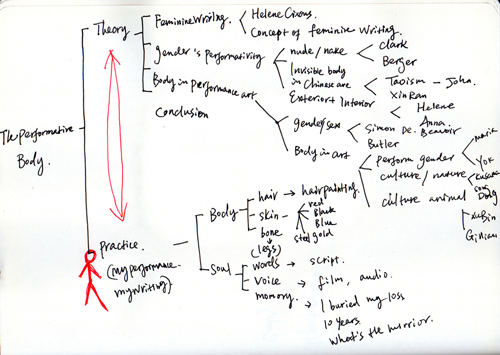 Theory
Feminine Writing.
Helene Cixous.
Concept of feminine writing.
gender's performativity
nude/nake
clark
Berger
Invisible body
in Chinese are
Taoism - John.
XinRan
Exterior & Interior
Helene
Body in performance art
Conclusion
gender/sex
Simon De. Beauvoir
Anna
Butler
Body in art
perform gender
culture/nature
culture animal
marie
Yok
Kusama
Song
Dong
XuBin
Gillian
The performative
Body.
Practice.
(my performance
my writing)
Body
hair → hairpainting.
skin
red
Black
Blue
gold
steel
bone
(legs)
Soul
words → script.
Voice → film, audio.
memory. → I buried my loss
10 years.
What's the mirror.